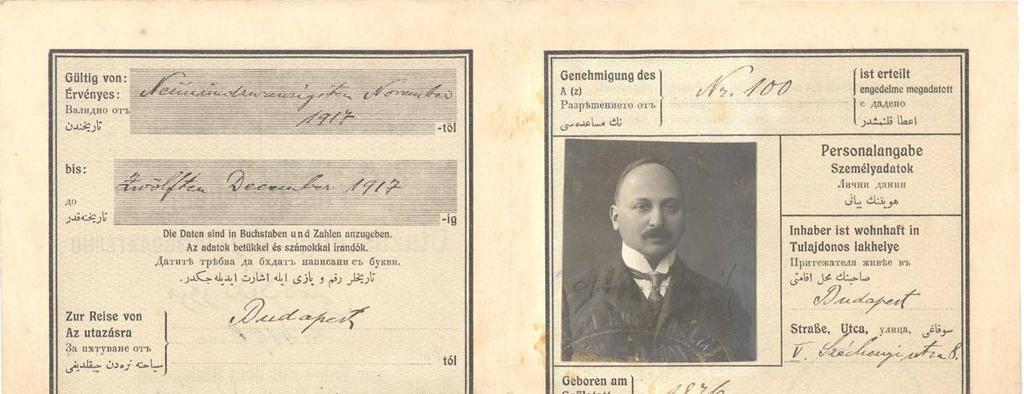 Gültig von:
Érvényes:
Валидно отъ
تاریخندن
Neunundzwanzigsten November
1917
-tól
bis:
до
تاریخنه قدر
Zwölften December 1917
-ig
Die Daten sind in Buchstaben und Zahlen anzugeben.
Az adatok betűkkel és számokkal irandók.
Датитѣ трѣбва да бѫдатъ написани съ букви.
تاریخلر رقم و یازی ایله اشارت ایدیله جکدر.
Zur Reise von
Az utazásra
За пхтуване отъ
سیاحته نره دن چیقلدیغی
Budapest
tól
Genehmigung des
A (z)
Разрѣшението отъ
نك مساعده سی
Nr. 100
ist erteilt
engedelme megadatott
е дадено
اعطا قلنمشدر
Personalangabe
Személyadatok
Лични данни
هویتنك بیانی
Inhaber ist wohnhaft in
Tulajdonos lakhelye
Притежателя живѣе въ
صاحبنك محل اقامتی
Budapest
Straße, Utca, улица, سوقاغی
V. Széchenyi utca 8.
Geboren am
1876